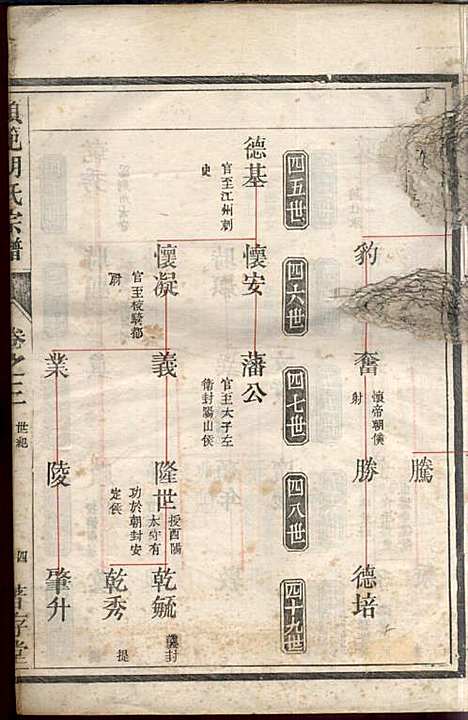 騰
豹
奮
懷帝朝僕
射
勝
德培
四五世
四六世
四七世
四八世
四十九世
德基
官至江州刺
史
懷安
藩公
官至太子左
衛封陽山侯
懷凝
官至
尉
義
隆世
授酉陽
太守有
功於朝封安
定侯
乾毓
封
乾秀
提
業
陵
肇升
氏宗譜
卷之三
世紀
四